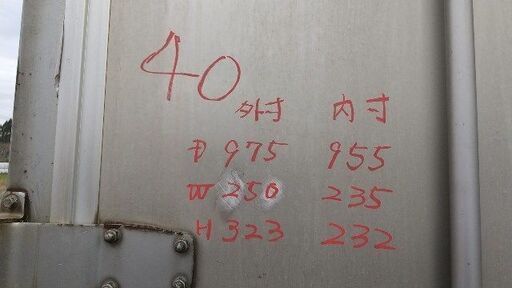 40
外寸 内寸
D 975 955
W 250 235
H 323 232